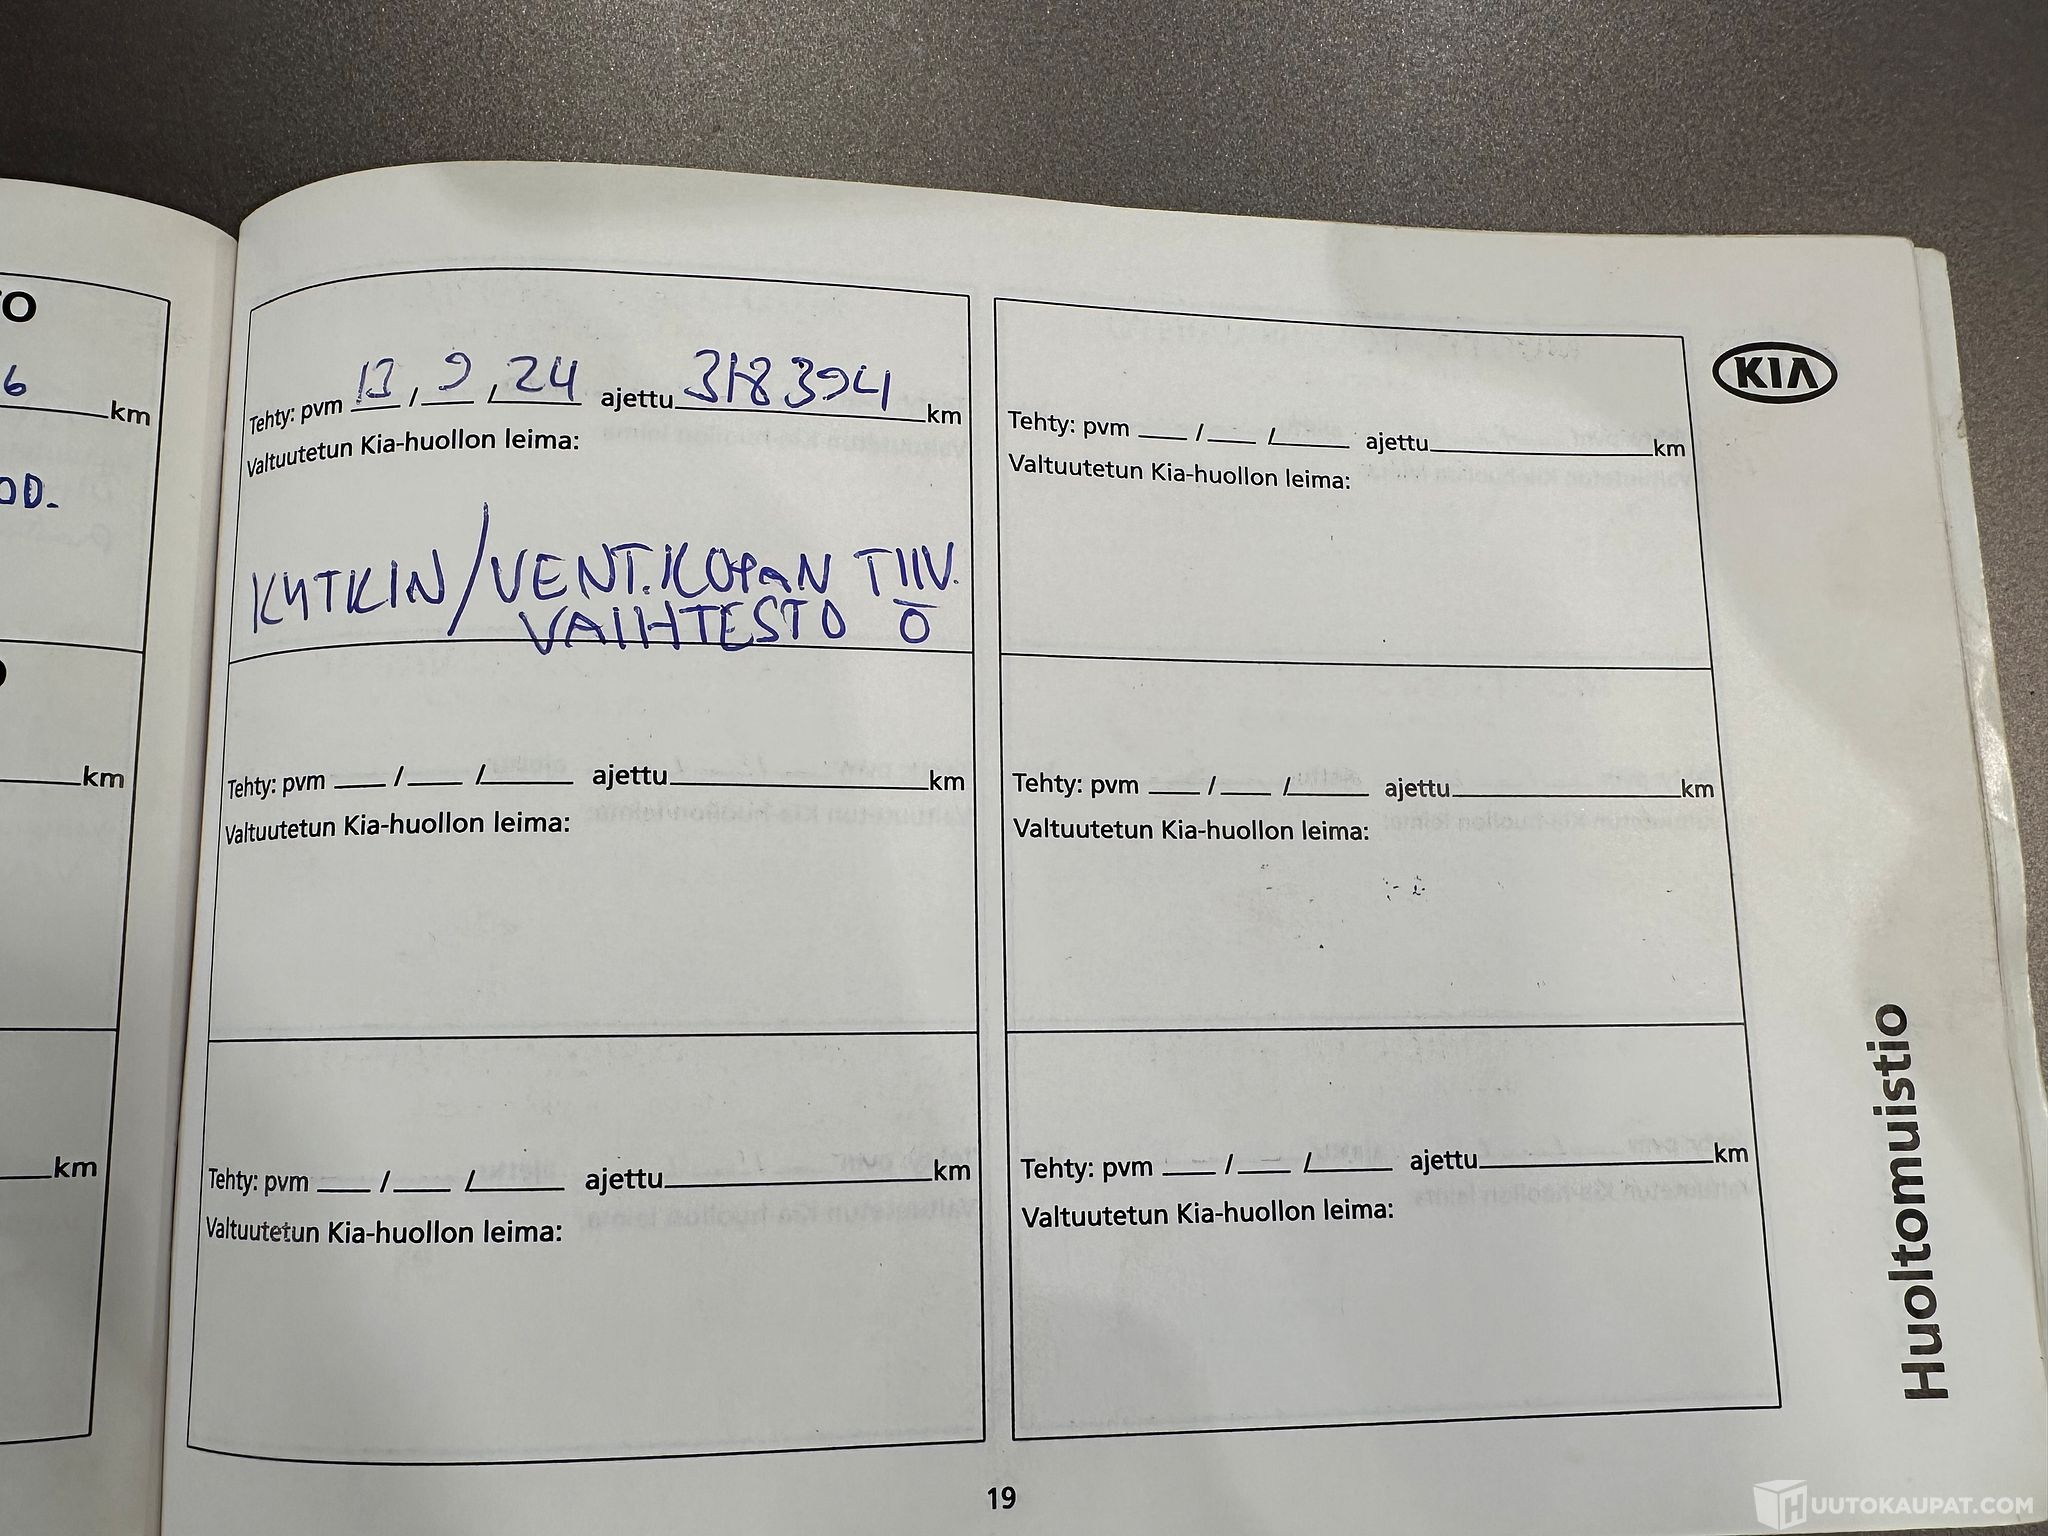 O
6 km
OD.
km
km
Tehty: pvm 13 / 9 / 24 ajettu 318394 km
Valtuutetun Kia-huollon leima:
KYTKIN/VENT.KOPAN TIIV.
VAIHTEISTO Ö
Tehty: pvm / / ajettu km
Valtuutetun Kia-huollon leima:
Tehty: pvm / / ajettu km
Valtuutetun Kia-huollon leima:
Tehty: pvm / / ajettu km
Valtuutetun Kia-huollon leima:
Tehty: pvm / / ajettu km
Valtuutetun Kia-huollon leima:
Tehty: pvm / / ajettu km
Valtuutetun Kia-huollon leima:
KIA
Huoltomuistio
19
HUUTOKAUPAT.COM